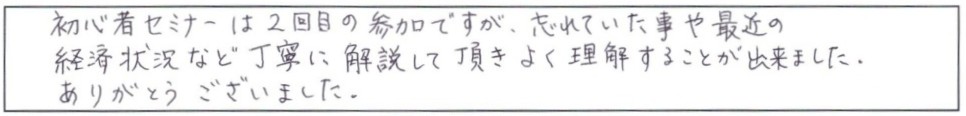 初心者セミナーは2回目の参加ですが、忘れていた事や最近の
経済状況など丁寧に解説して頂きよく理解することが出来ました.
ありがとうございました.